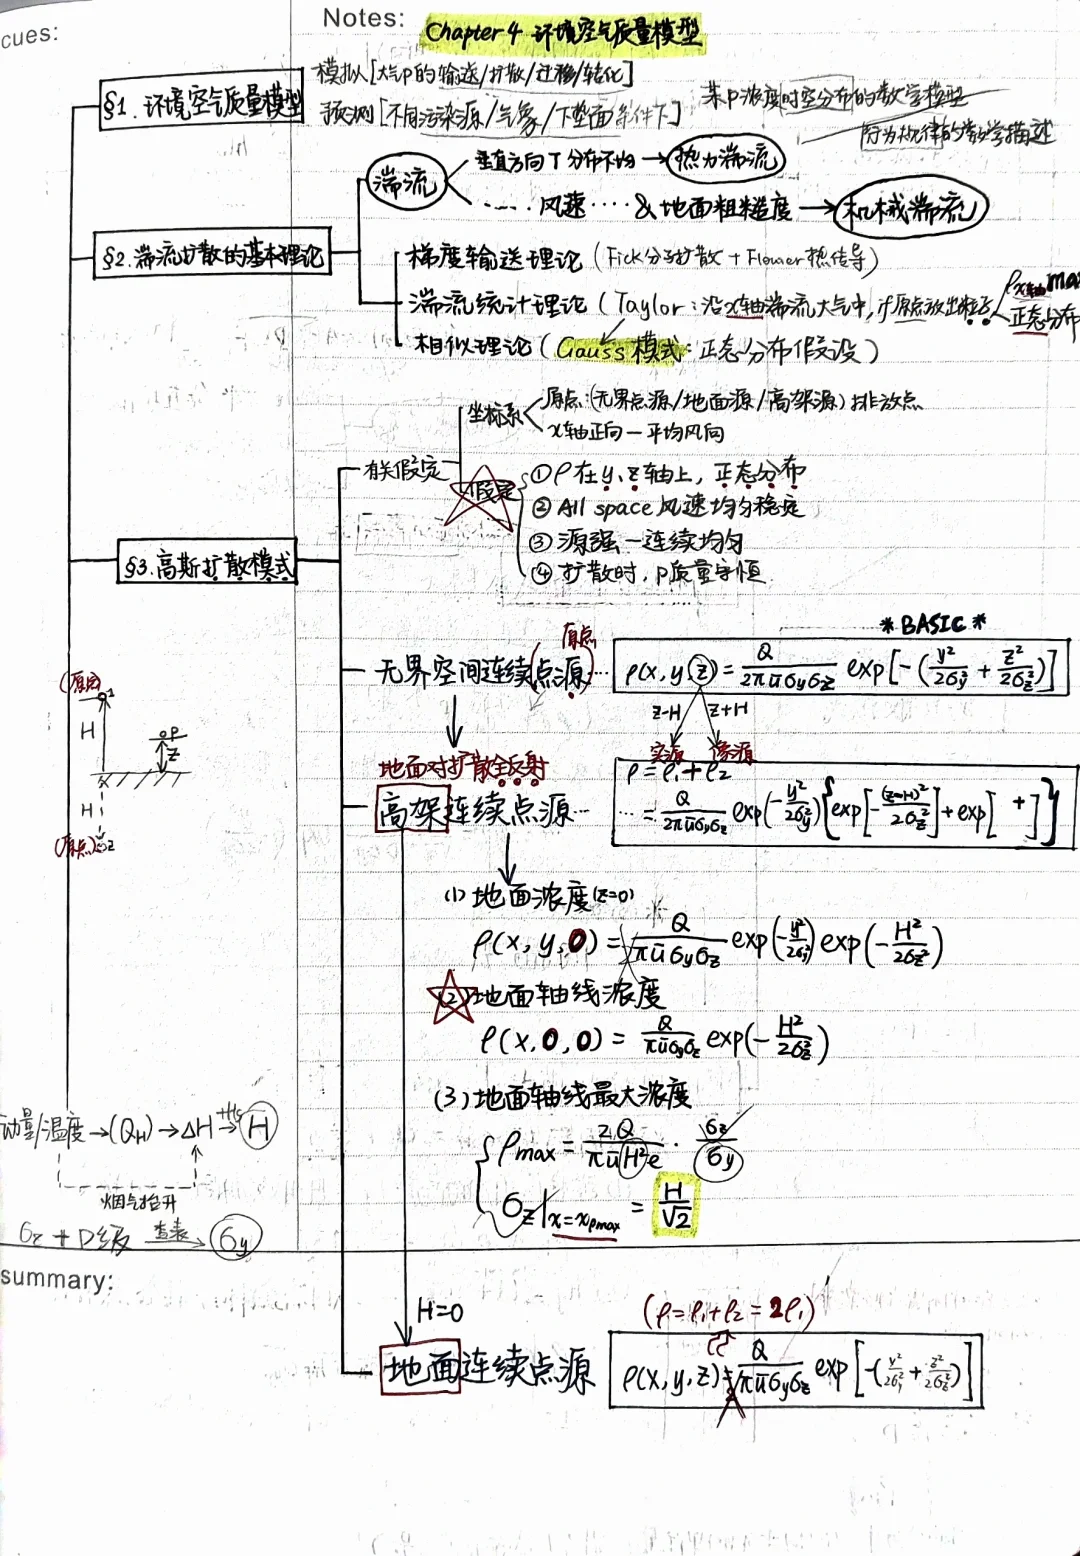 cues:
Notes:
Chapter 4 环境空气质量模型
§1. 环境空气质量模型
模拟[大气P的输送/扩散/迁移/转化]
预测[不同污染源/气象/下垫面条件下]
某P浓度时空分布的数学模型
行为规律的数学描述
§2. 湍流扩散的基本理论
湍流
垂直方向T分布不均→热力湍流
…… 风速 …… &地面粗糙度→机械湍流
梯度输送理论(Fick分子扩散+Flower热传导)
湍流统计理论(Taylor:沿x轴湍流大气中,if原点放出粒子
ρx轴max
正态分布
相似理论(Gauss模式:正态分布假设)
§3. 高斯扩散模式
有关假定
坐标系
原点:(无界点源/地面源/高架源)排放点
x轴正向—平均风向
假定
①ρ在y、z轴上,正态分布
②All space 风速均匀稳定
③源强—连续均匀
④扩散时,P质量守恒
*BASIC*
原点
无界空间连续(点源)…
ρ(x, y, z) = Q/(2πūσyσz) exp[-(y²/2σy² + z²/2σz²)]
z-H z+H
实源 像源
地面对扩散全反射
高架连续点源…
ρ = ρ1 + ρ2
… = Q/(2πūσyσz) exp(-y²/2σy²) {exp[-(z-H)²/2σz²] + exp[ + ]}
(原点)
H
P
z
H
(原点)
(1)地面浓度(z=0)
ρ(x, y, 0) = Q/(πūσyσz) exp(-y²/2σy²) exp(-H²/2σz²)
(2)地面轴线浓度
ρ(x, 0, 0) = Q/(πūσyσz) exp(-H²/2σz²)
(3)地面轴线最大浓度
ρmax = 2Q/(πūH²e) · σz/σy
σz|x=xρmax = H/√2
动量/温度→(QH)→ΔH +Hs→ H
烟气抬升
σz + P级 查表→ σy
summary:
H=0
(ρ=ρ1+ρ2=2ρ1)
地面连续点源
ρ(x, y, z) = Q/(πūσyσz) exp[-(y²/2σy² + z²/2σz²)]